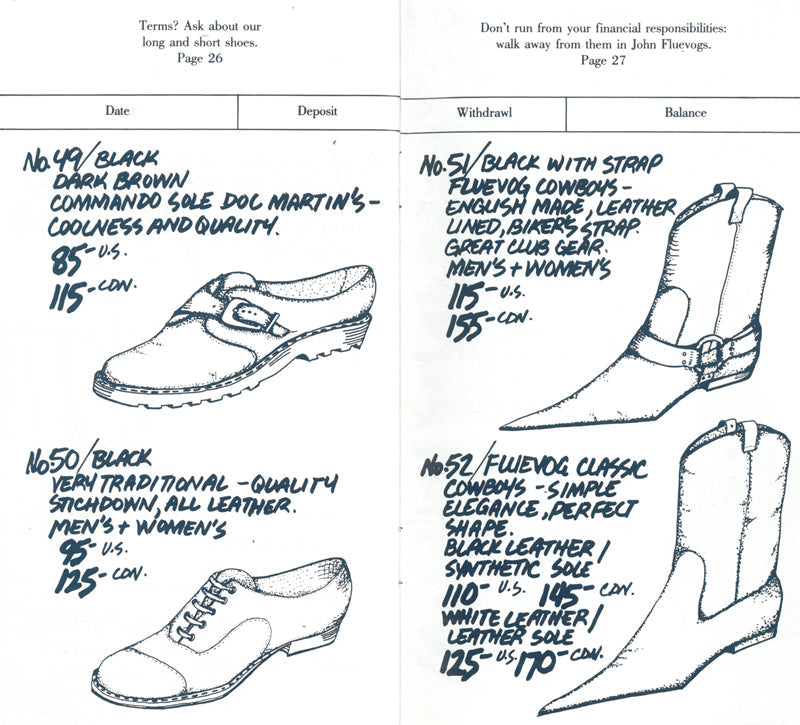 Terms? Ask about our
long and short shoes.
Page 26
Date
Deposit
No. 49/BLACK
DARK BROWN
COMMANDO SOLE DOC MARTIN'S -
COOLNESS AND QUALITY.
85- U.S.
115- CDN.
No. 50/BLACK
VERY TRADITIONAL - QUALITY
STICHDOWN, ALL LEATHER.
MEN'S + WOMEN'S
95- U.S.
125- CDN.
Don't run from your financial responsibilities:
walk away from them in John Fluevogs.
Page 27
Withdrawl
Balance
No. 51/BLACK WITH STRAP
FLUEVOG COWBOYS -
ENGLISH MADE, LEATHER
LINED, BIKER'S STRAP.
GREAT CLUB GEAR.
MEN'S + WOMEN'S
115- U.S.
155- CDN.
No. 52/FLUEVOG CLASSIC
COWBOYS - SIMPLE
ELEGANCE, PERFECT
SHAPE.
BLACK LEATHER/
SYNTHETIC SOLE
110- U.S. 145- CDN.
WHITE LEATHER/
LEATHER SOLE
125- U.S. 170- CDN.